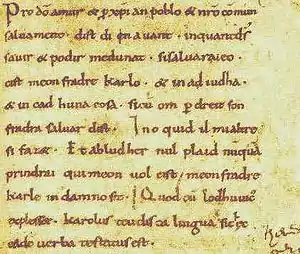 Pro dõ amur & p xpian poblo & nr̃o comun
saluament. dist di en auant. inquantds̃
sauir & podir medunat. sisaluaraieo
cist meon fradre Karlo. & in adiudha
& in cad huna cosa. sicũ om p dreit son
fradra saluar dift. Ino quid il mialtre
si fazet. Et abludher nul plaid nũquã
prindrai qui meon uol cist. meonfradre
Karle in damno sit. Quod cũ lodhuuic'
explesset. karolus teudisca lingua sic
eadẽ uerba testatus est.